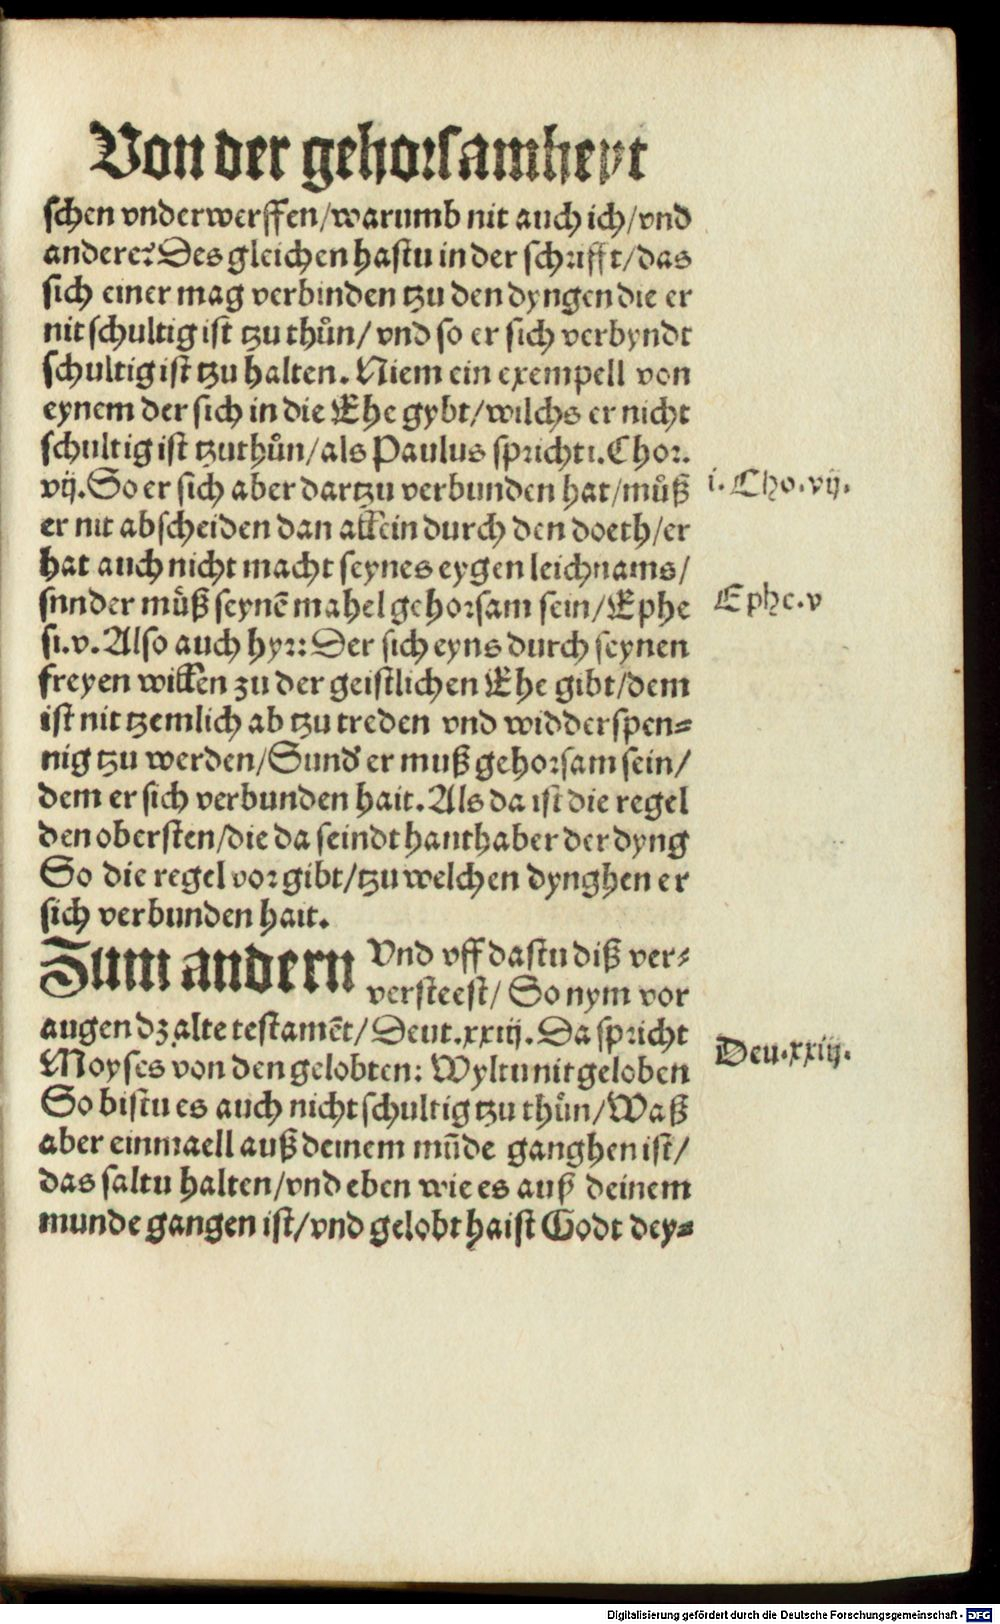 Von der gehorsamheyt
schen vnderwerffen/warumb nit auch ich/vnd
andere? Des gleichen hastu in der schrifft/das
sich einer mag verbinden tzu den dyngen die er
nit schultig ist tzu thůn/ vnd so er sich verbyndt
schultig ist tzu halten. Niem ein exempell von
eynem der sich in die Ehe gybt/wilchs er nicht
schultig ist tzuthůn/als Paulus spricht i. Chor.
vij. So er sich aber dartzu verbunden hat/můß
i. Cho. vij.
er nit abscheiden dan allein durch den doeth/er
hat auch nicht macht seynes eygen leichnams/
sunder můß seynē mahel gehorsam sein/Ephe
Ephe. v
si. v. Also auch hyr: Der sich eyns durch seynen
freyen willen zu der geistlichen Ehe gibt/dem
ist nit tzemlich ab tzu treden vnd widderspen-
nig tzu werden/Sund' er muß gehorsam sein/
dem er sich verbunden hait. Als da ist die regel
den obersten/die da seindt hanthaber der dyng
So die regel vor gibt/tzu welchen dynghen er
sich verbunden hait.
Zum andern Vnd vff dastu diß ver-
versteest/ So nym vor
augen dz alte testamēt/ Deut. xxiij. Da spricht
Deu. xxiij.
Moyses von den gelobten: Wyltu nit geloben
So bistu es auch nicht schultig tzu thůn/Waß
aber einmaell auß deinem mūde ganghen ist/
das saltu halten/vnd eben wie es auß deinem
munde gangen ist/vnd gelobt haist Godt dey-
Digitalisierung gefördert durch die Deutsche Forschungsgemeinschaft - DFG